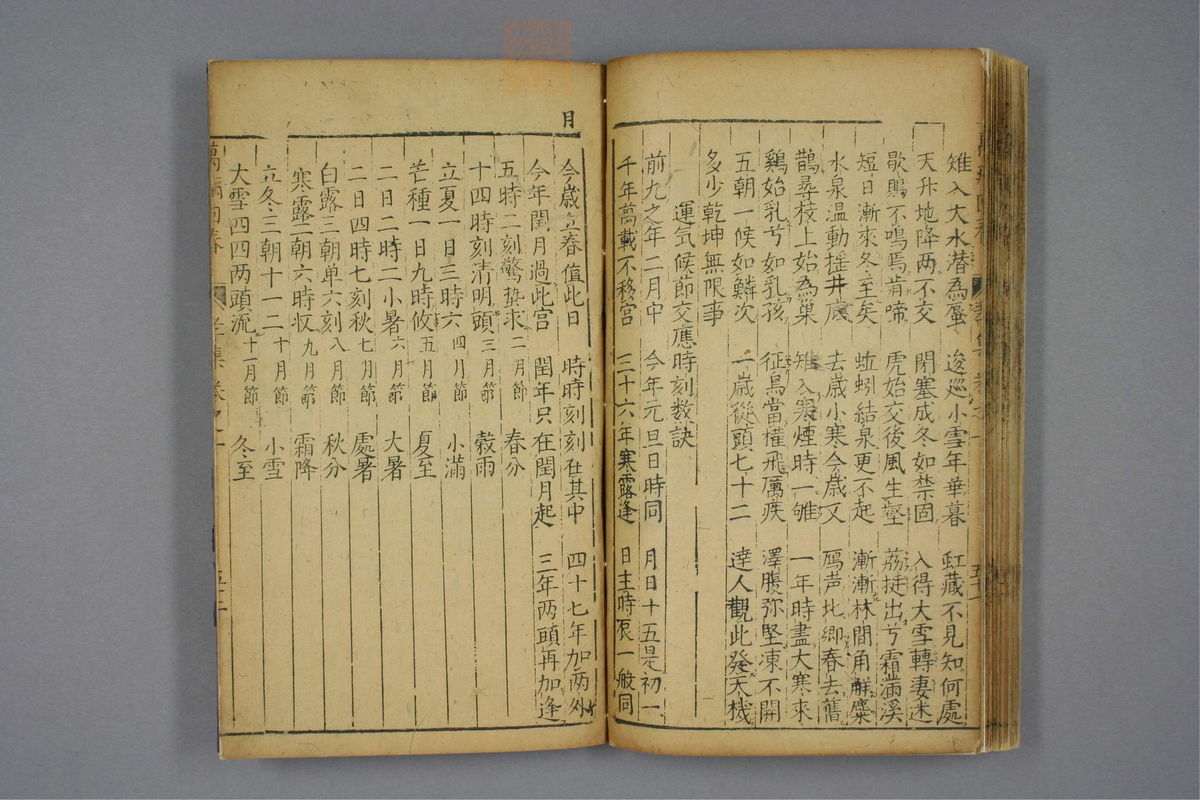 雉入大水潜為蜃　逡巡小雪年華暮　虹藏不見知何處
天升地降两不交　閉塞成冬如禁固　入得大雪轉妻迷
歇鴠不鳴焉肯啼　虎始交後風生壑　荔挺出兮霜滿溪
短日漸來冬至矣　蚯蚓結泉更不起　漸漸林間角觧麋
水泉温動摇井底　去歳小寒今歳又　鴈声北郷春去舊
鵲尋枝上始為巢　雉入寒煙時一雊　一年時盡大寒來
鷄始乳兮如乳孩　征鳥當權飛厲疾　澤腹弥堅凍不開
五朝一候如鱗次　一歳從頭七十二　達人觀此發天機
多少乾坤無限事
運気候節交應時刻数訣
前九之年二月中　今年元旦日時同　月日十五是初一
千年萬載不移宫　三十六年寒露逢　日主時辰一般同
月
今歳立春值此日　時時刻刻在其中　四十七年加两外
今年閏月過此宫　閏年只在閏月起　三年两頭再加逢
五時二刻驚蟄求　二月節　春分
十四時刻清明頭　三月節　穀雨
立夏一日三時六　四月節　小滿
芒種一日九時攸　五月節　夏至
二日二時二小暑　六月節　大暑
二日四時七刻秋　七月節　處暑
白露三朝单六刻　八月節　秋分
寒露三朝六時収　九月節　霜降
立冬三朝十一二　十月節　小雪
大雪四四两頭流　十一月節　冬至